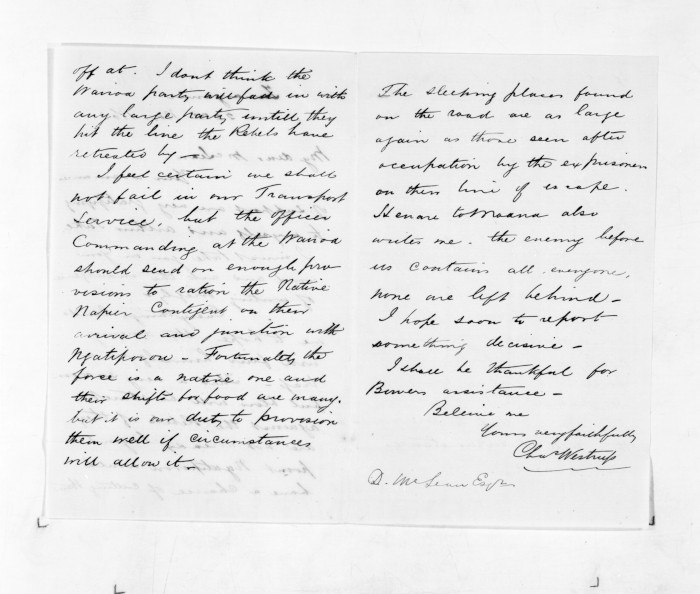 off at. I dont think the
Wairoa party will fall in with
any large party untill they
hit the line the Rebels have
retreated by —
I feel certain we shall
not fail in our Transport
Service, but the Officer
Commanding at the Wairoa
should send on enough pro
visions to ration the Native
Napier Contigent on their
arrival and junction with
Ngatiporou — Fortunately the
force is a native one and
their shifts for food are many.
but it is our duty to provision
them well if circumstances
will allow it —
The sleeping places found
on the road are as large
again as those seen after
occupation by the ex prisoners
on their line of escape.
Henare to Moana also
writes me. the enemy before
us contains all. everyone,
none are left behind —
I hope soon to report
something decisive —
I shall be thankful for
Bowers assistance —
Beleive me
Yours very faithfully
Chas Westrup
D. McLean Esqre